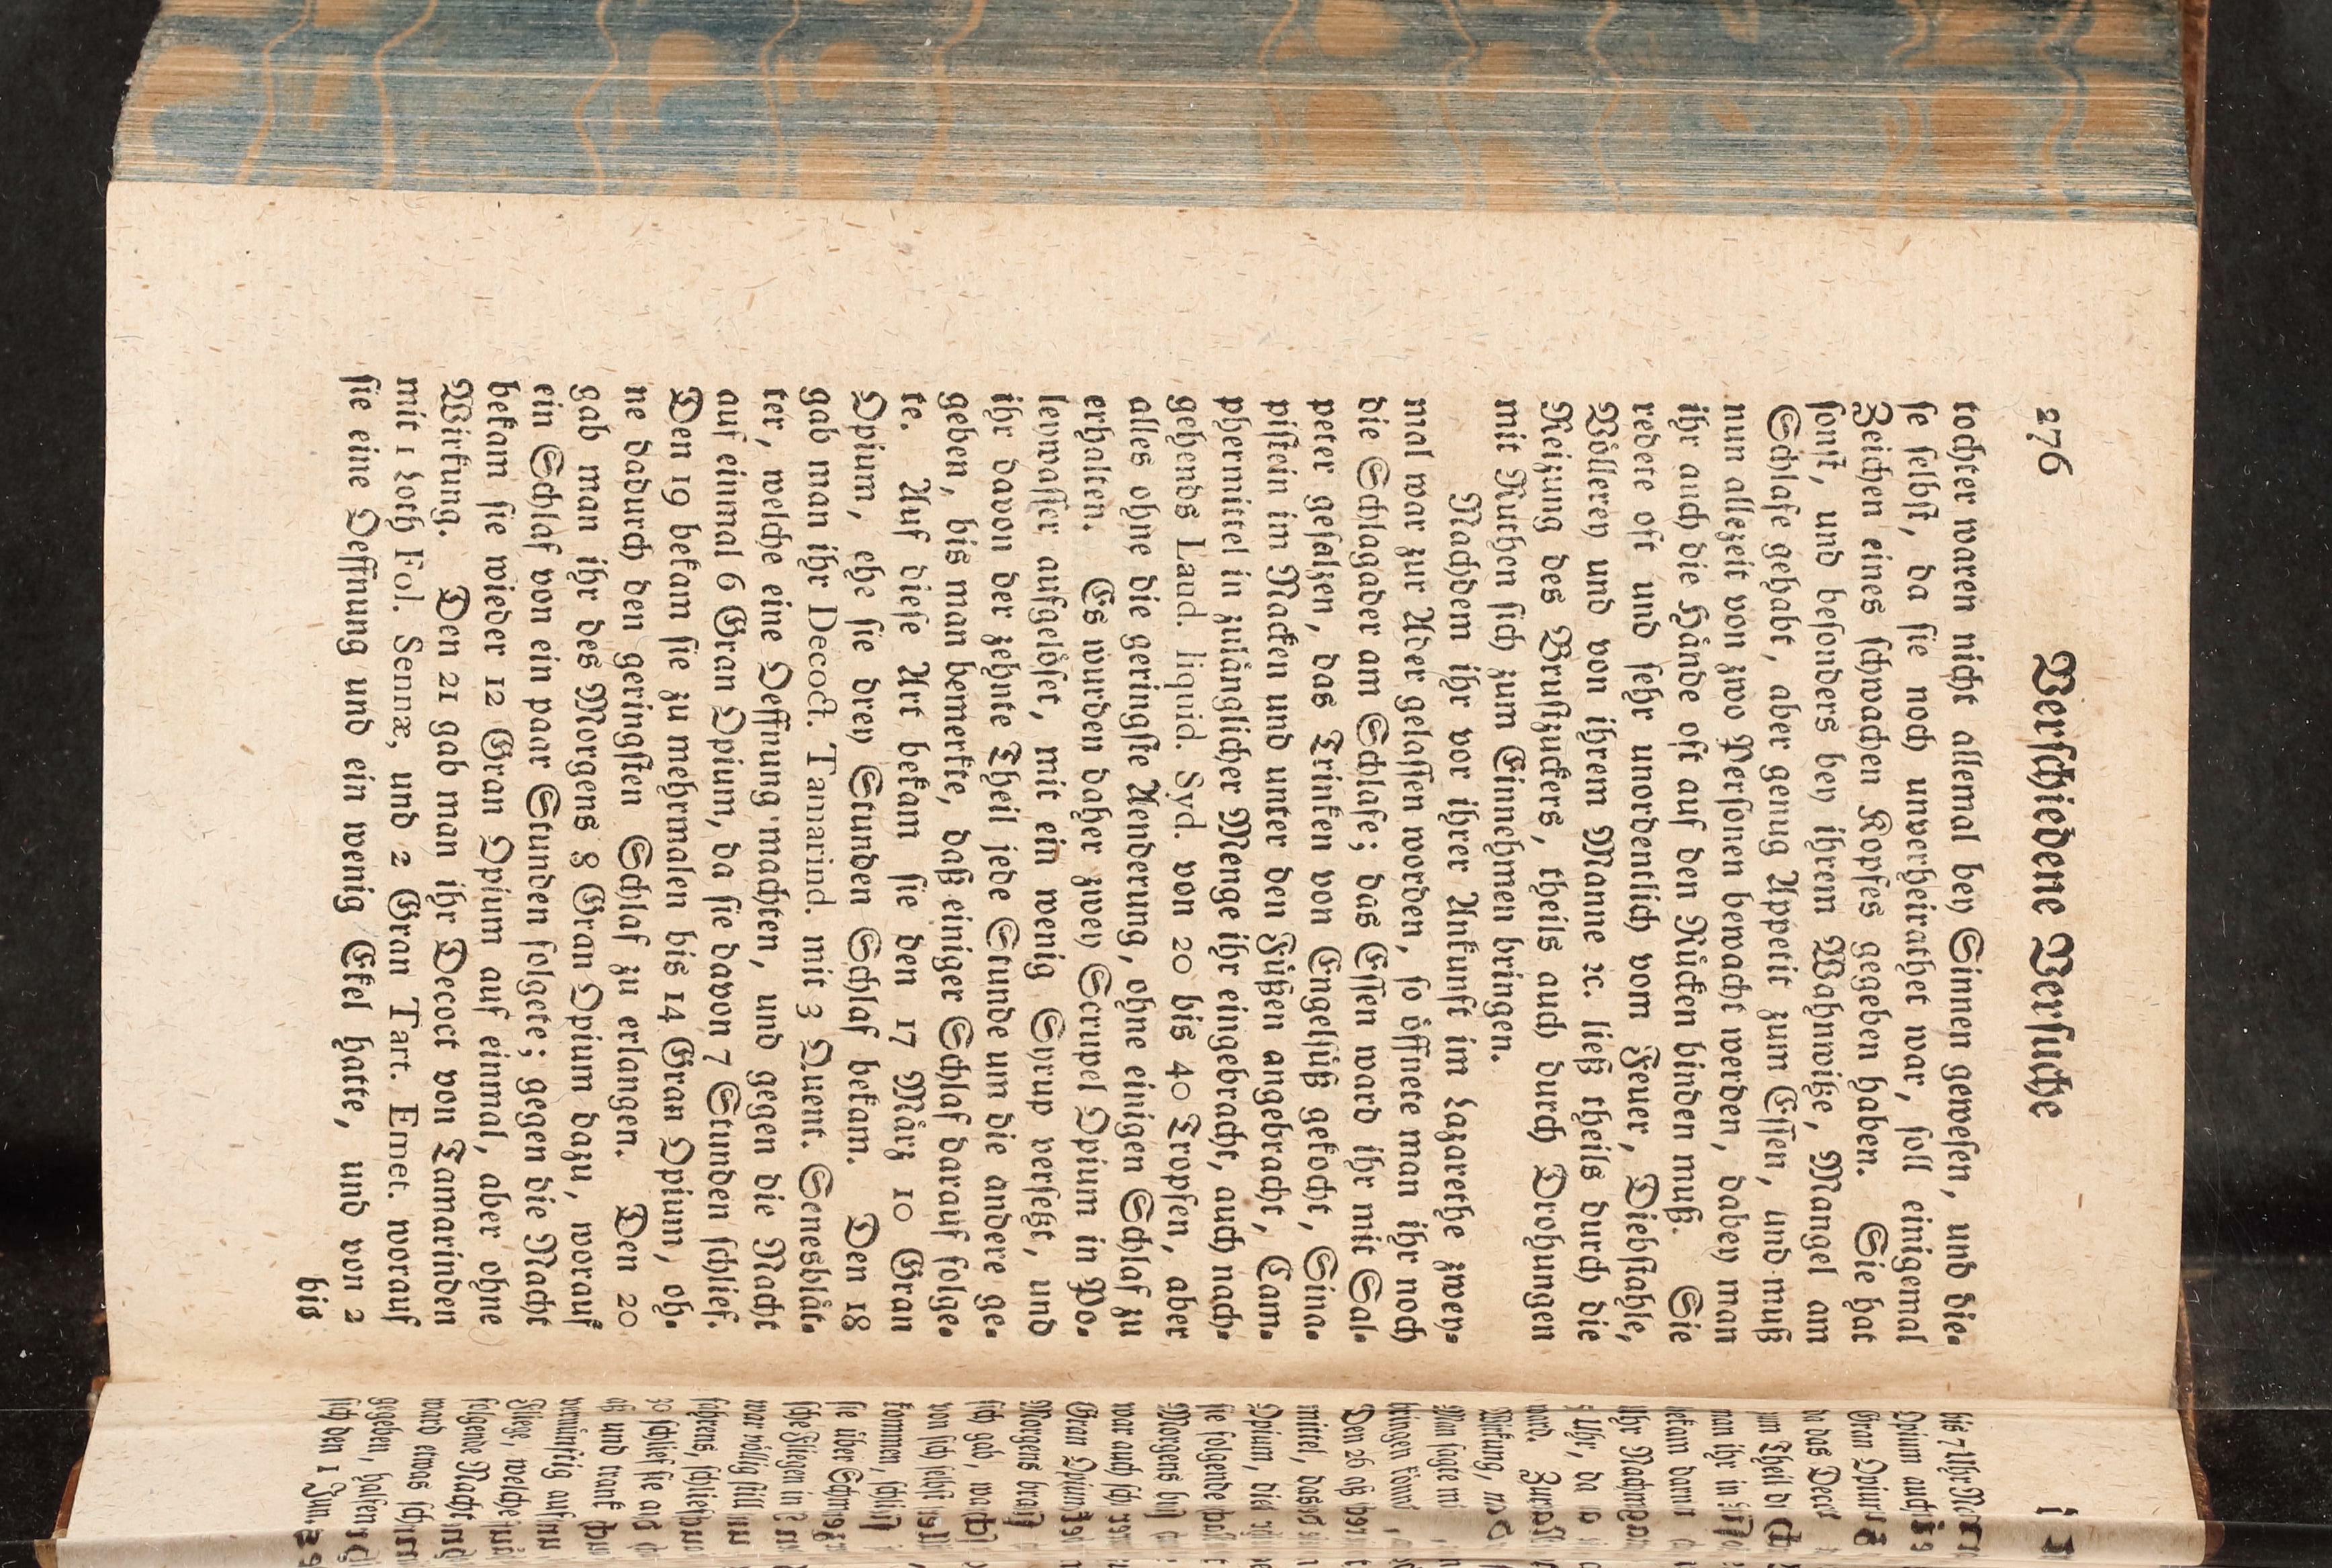 276 Verschiedene Versuche
tochter waren nicht allemal bey Sinnen gewesen, und die-
se selbst, da sie noch unverheirathet war, soll einigemal
Zeichen eines schwachen Kopfes gegeben haben. Sie hat
sonst, und besonders bey ihrem Wahnwitze, Mangel am
Schlafe gehabt, aber genug Appetit zum Essen, und muß
nun allezeit von zwo Personen bewacht werden, dabey man
ihr auch die Hände oft auf den Rücken binden muß. Sie
redete oft und sehr unordentlich vom Feuer, Diebstahle,
Völlerey und von ihrem Manne ꝛc. ließ theils durch die
Reitzung des Brustzuckers, theils auch durch Drohungen
mit Ruthen sich zum Einnehmen bringen.
Nachdem ihr vor ihrer Ankunft im Lazarethe zwey-
mal war zur Ader gelassen worden, so öffnete man ihr noch
die Schlagader am Schlafe; das Essen ward ihr mit Sal-
peter gesalzen, das Trinken von Engelsüß gekocht, Sina-
pistein im Nacken und unter den Füßen angebracht, Cam-
phermittel in zulänglicher Menge ihr eingebracht, auch nach-
gehends Laud. liquid. Syd. von 20 bis 40 Tropfen, aber
alles ohne die geringste Aenderung, ohne einigen Schlaf zu
erhalten. Es wurden daher zwey Scrupel Opium in Po-
leywasser aufgelöset, mit ein wenig Syrup versetzt, und
ihr davon der zehnte Theil jede Stunde um die andere ge-
geben, bis man bemerkte, daß einiger Schlaf darauf folge-
te. Auf diese Art bekam sie den 17 März 10 Gran
Opium, ehe sie drey Stunden Schlaf bekam. Den 18
gab man ihr Decoct. Tamarind. mit 3 Quent. Senesblät-
ter, welche eine Oeffnung machten, und gegen die Nacht
auf einmal 6 Gran Opium, da sie davon 7 Stunden schlief.
Den 19 bekam sie zu mehrmalen bis 14 Gran Opium, oh-
ne dadurch den geringsten Schlaf zu erlangen. Den 20
gab man ihr des Morgens 8 Gran Opium dazu, worauf
ein Schlaf von ein paar Stunden folgete; gegen die Nacht
bekam sie wieder 12 Gran Opium auf einmal, aber ohne
Wirkung. Den 21 gab man ihr Decoct von Tamarinden
mit 1 Loth Fol. Sennæ, und 2 Gran Tart. Emet. worauf
sie eine Oeffnung und ein wenig Ekel hatte, und von 2
bis
bis 7 Uhr
Opium auch
Gran Opium
da das
zum Theil
man ihr in
bekam darauf
Uhr Nachmit
5 Uhr, da
ward.
Wirkung,
Man sagte
bringen
Den 26
mittel, das
Opium, die
sie folgende
Morgens
war auch
Gran Opium
Morgens
sich gab,
von sich selbst
kommen,
sie über
sche Fliegen in
war völlig still
fahrens, schlief
30 schlief sie
aß und trank
vernünftig auf
Fliege, welche
folgende Nacht
ward etwas
gegeben, halfen
sich den 1 Jun.